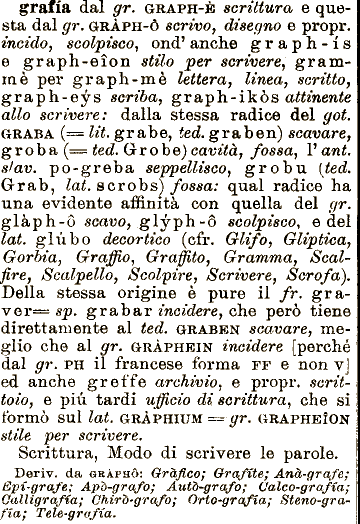 grafía dal gr. GRAPH-È scrittura e que-
sta dal gr. GRÀPH-Ô scrivo, disegno e propr.
incido, scolpisco, ond' anche graph-ìs
e graph-eîon stilo per scrivere, gram-
mè per graph-mè lettera, linea, scritto,
graph-eýs scriba, graph-ikòs attinente
allo scrivere: dalla stessa radice del got.
GRABA (= lit. grabe, ted. graben) scavare,
groba (= ted. Grobe) cavità, fossa, l' ant.
slav. po-greba seppellisco, grobu (ted.
Grab, lat. scrobs) fossa: qual radice ha
una evidente affinità con quella del gr.
glàph-ô scavo, glýph-ô scolpisco, e del
lat. glúbo decortico (cfr. Glifo, Gliptica,
Gorbia, Graffio, Graffito, Gramma, Scal-
fire, Scalpello, Scolpire, Scrivere, Scrofa).
Della stessa origine è pure il fr. gra-
ver = sp. grabar incidere, che però tiene
direttamente al ted. GRABEN scavare, me-
glio che al gr. GRÀPHEIN incidere [perché
dal gr. PH il francese forma FF e non v]
ed anche greffe archivio, e propr. scrit-
toio, e piú tardi ufficio di scrittura, che si
formò sul lat. GRÀPHIUM = gr. GRAPHEÎON
stile per scrivere.
Scrittura, Modo di scrivere le parole.
Deriv. da GRÀPHÔ: Gràfico; Grafite; Anà-grafe;
Epí-grafe; Apò-grafo; Autò-grafo; Calco-grafía;
Calligrafía; Chirò-grafo; Orto-grafía; Steno-gra-
fía; Tele-grafía.